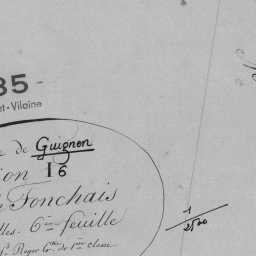 35
et-Vilaine
de Guignen
ion I6
Fonchais
lles. 6ème feuille
Roger Gtre de 1ère classe
1
2500